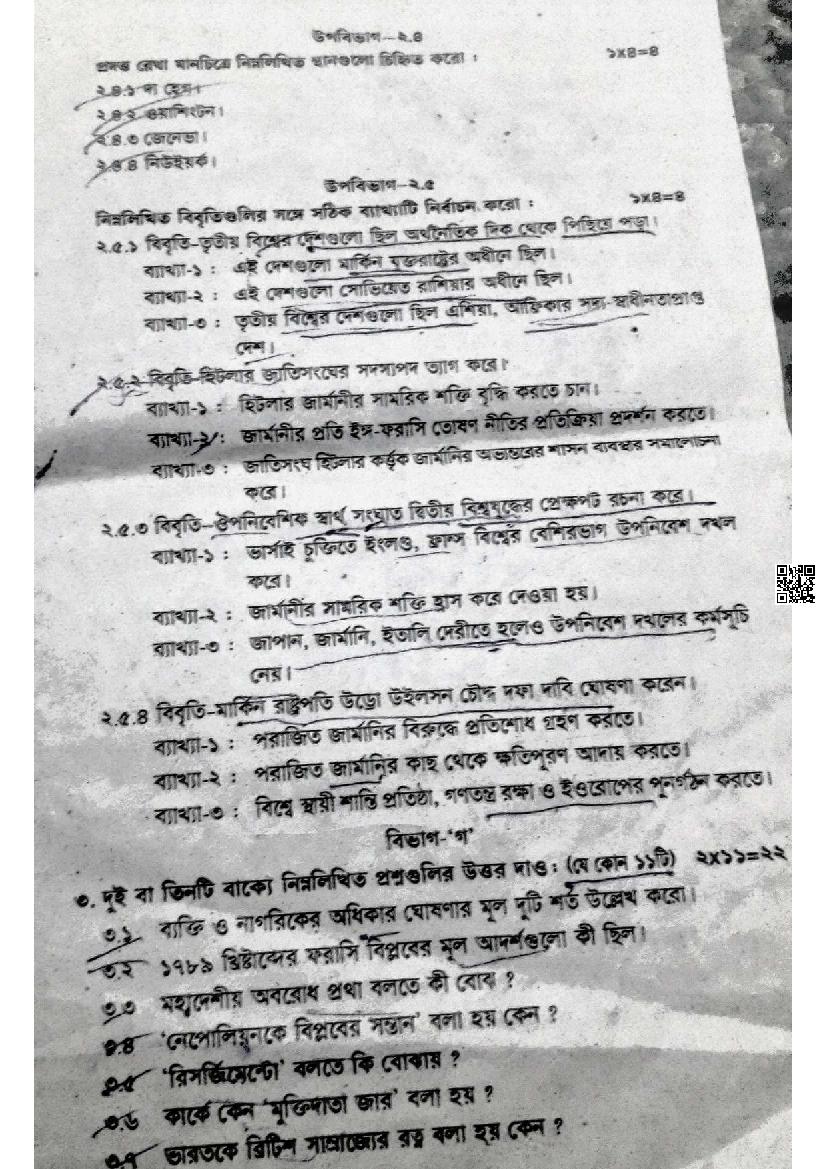 উপবিভাগ-২.৪
প্রদত্ত রেখা মানচিত্রে নিম্নলিখিত স্থানগুলো চিহ্নিত করো : ১×৪=৪
২.৪.১ দা হেগ।
২.৪.২ ওয়াশিংটন।
২.৪.৩ জেনেভা।
২.৪.৪ নিউইয়র্ক।
উপবিভাগ-২.৫
নিম্নলিখিত বিবৃতিগুলির সঙ্গে সঠিক ব্যাখ্যাটি নির্বাচন করো : ১×৪=৪
২.৫.১ বিবৃতি-তৃতীয় বিশ্বের দেশগুলো ছিল অর্থনৈতিক দিক থেকে পিছিয়ে পড়া।
ব্যাখ্যা-১ : এই দেশগুলো মার্কিন যুক্তরাষ্ট্রের অধীনে ছিল।
ব্যাখ্যা-২ : এই দেশগুলো সোভিয়েত রাশিয়ার অধীনে ছিল।
ব্যাখ্যা-৩ : তৃতীয় বিশ্বের দেশগুলো ছিল এশিয়া, আফ্রিকার সদ্য-স্বাধীনতাপ্রাপ্ত
দেশ।
২.৫.২ বিবৃতি-হিটলার জাতিসংঘের সদস্যপদ ত্যাগ করে।
ব্যাখ্যা-১ : হিটলার জার্মানীর সামরিক শক্তি বৃদ্ধি করতে চান।
ব্যাখ্যা-২ : জার্মানীর প্রতি ইঙ্গ-ফরাসি তোষণ নীতির প্রতিক্রিয়া প্রদর্শন করতে।
ব্যাখ্যা-৩ : জাতিসংঘ হিটলার কর্তৃক জার্মানির অভ্যন্তরের শাসন ব্যবস্থার সমালোচনা
করে।
২.৫.৩ বিবৃতি-ঔপনিবেশিক স্বার্থ সংঘাত দ্বিতীয় বিশ্বযুদ্ধের প্রেক্ষাপট রচনা করে।
ব্যাখ্যা-১ : ভার্সাই চুক্তিতে ইংলণ্ড, ফ্রান্স বিশ্বের বেশিরভাগ উপনিবেশ দখল
করে।
ব্যাখ্যা-২ : জার্মানীর সামরিক শক্তি হ্রাস করে দেওয়া হয়।
ব্যাখ্যা-৩ : জাপান, জার্মানি, ইতালি দেরীতে হলেও উপনিবেশ দখলের কর্মসূচি
নেয়।
২.৫.৪ বিবৃতি-মার্কিন রাষ্ট্রপতি উড্রো উইলসন চৌদ্দ দফা দাবি ঘোষণা করেন।
ব্যাখ্যা-১ : পরাজিত জার্মানির বিরুদ্ধে প্রতিশোধ গ্রহণ করতে।
ব্যাখ্যা-২ : পরাজিত জার্মানির কাছ থেকে ক্ষতিপূরণ আদায় করতে।
ব্যাখ্যা-৩ : বিশ্বে স্থায়ী শান্তি প্রতিষ্ঠা, গণতন্ত্র রক্ষা ও ইওরোপের পূনর্গঠন করতে।
বিভাগ-'গ'
৩. দুই বা তিনটি বাক্যে নিম্নলিখিত প্রশ্নগুলির উত্তর দাও : (যে কোন ১১টি) ২×১১=২২
৩.১ ব্যক্তি ও নাগরিকের অধিকার ঘোষণার মূল দুটি শর্ত উল্লেখ করো।
৩.২ ১৭৮৯ খ্রিষ্টাব্দের ফরাসি বিপ্লবের মূল আদর্শগুলো কী ছিল।
৩.৩ মহাদেশীয় অবরোধ প্রথা বলতে কী বোঝ ?
৩.৪ 'নেপোলিয়নকে বিপ্লবের সন্তান' বলা হয় কেন ?
৩.৫ 'রিসর্জিমেন্টো' বলতে কি বোঝায় ?
৩.৬ কাকে কেন 'মুক্তিদাতা জার' বলা হয় ?
৩.৭ ভারতকে ব্রিটিশ সাম্রাজ্যের রত্ন বলা হয় কেন ?